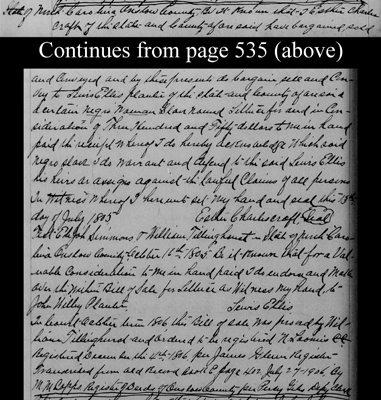 State of North Carolina Onslow County Be it Known that I Esther Charles
croft of the state and County aforesaid have bargained, sold
Continues from page 535 (above)
and Conveyed and by these presents do bargain, sell and Con
vey to Lewis Ellis planter of the state and County aforesaid
a certain negro Woman Slave named Lettice for and in Con
sideration of Three Hundred and Fifty dollars to me in hand
paid the receipt whereof I do hereby acknowledge Which said
negro slave I do warrant and defend to the said Lewis Ellis
his heirs or assigns against the lawful Claims of all persons
In witness whereof I hereunto set my hand and seal this 13th
day of July 1805 Esther Charlescroft, Seal
Test Ralph Simmons & William Tillinghurst - State of North Caro
lina Onslow County October 10th 1805. Be it Known that for a Val
uable Consideration to me in hand paid I do endorse and Make
over the within Bill of Sale for Lettice as Witness my hand, to
John Willey Planter. Lewis Ellis
In Court October term 1806 this Bill of sale was proved by Wil
liam Tillinghurst and ordered to be registered N Loomis CC
Registered December the 10th 1806 per James Glenn Register
Transcribed from old Record Book page 402 July 27-1906 By
M M Capps Register of Deeds of Onslow County per Deputy Clerk